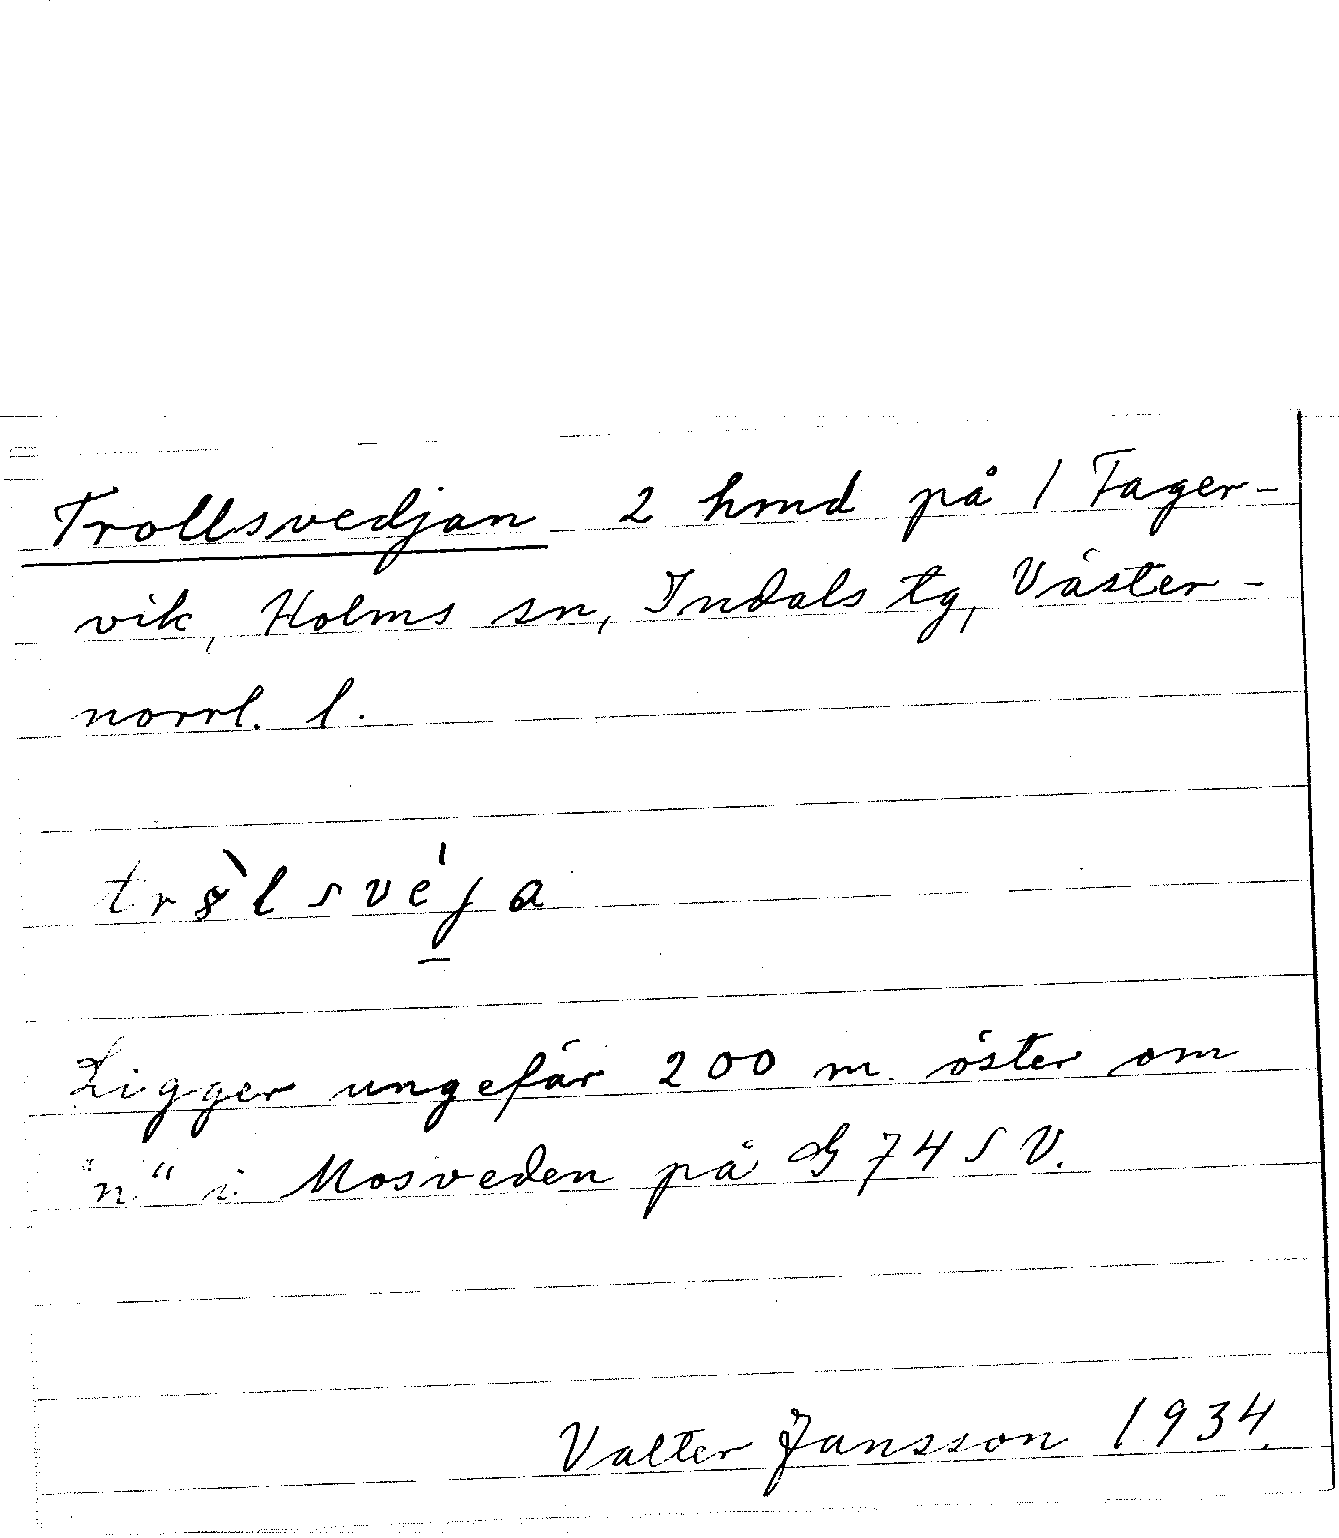 Trollsvedjan 2 hmd på 1 Fager-
vik, Holms sn, Indals tg, Väster-
norrl. l.
Ligger ungefär 200 m. öster om
"n" i Mosveden på G 74 S V.
Valter Jansson 1934.